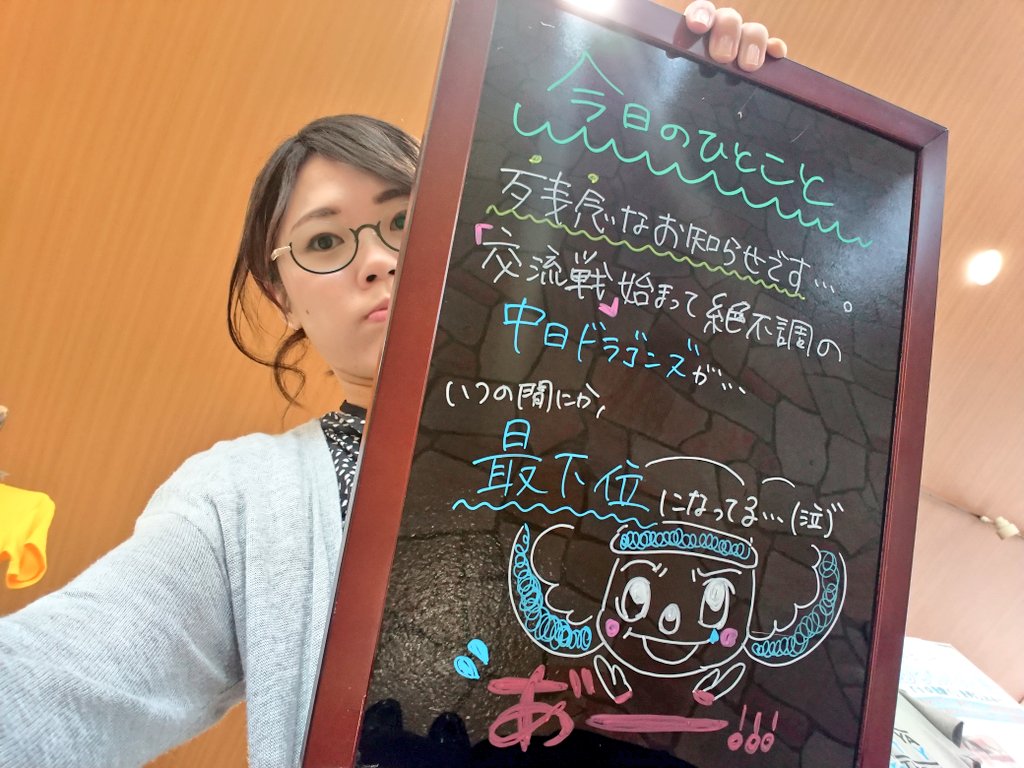 今日のひとこと
残念なお知らせです…。
「交流戦」始まって絶不調の
中日ドラゴンズが…
いつの間にか、
最下位になってる…(泣)
あ゛ー!!!
YA